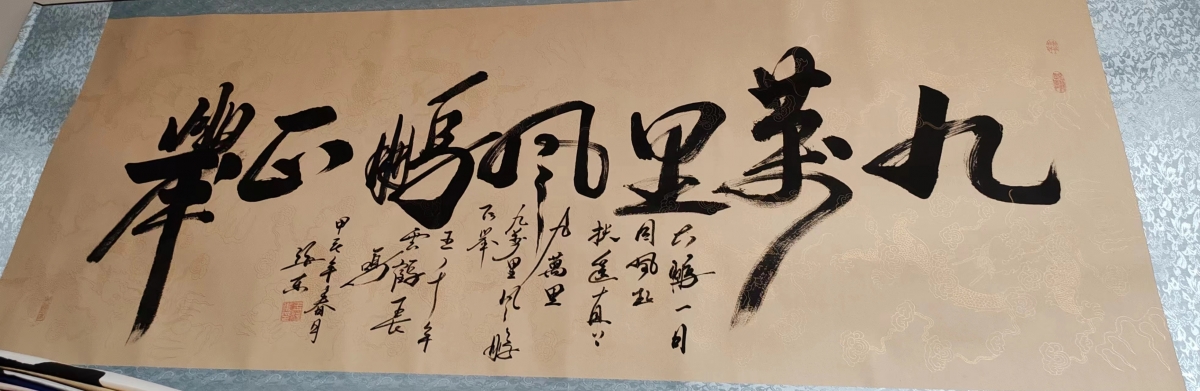 九萬里風鵬正舉
大鵬一日
同風起
扶遥直上
九萬里
九萬里風鵬
正舉
年
雲鶴長
壽
甲辰年春月